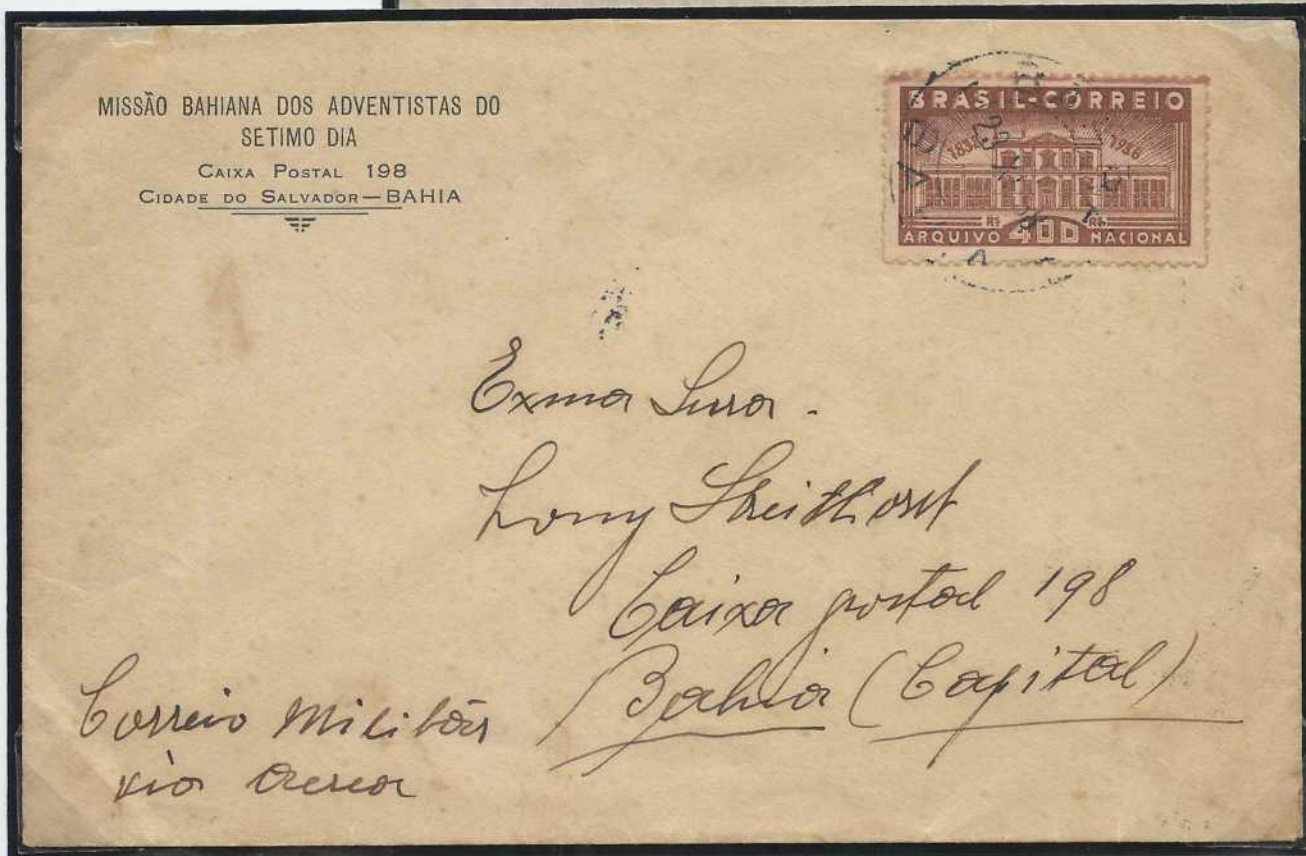 MISSÃO BAHIANA DOS ADVENTISTAS DO
SETIMO DIA
CAIXA POSTAL 198
CIDADE DO SALVADOR—BAHIA
BRASIL-CORREIO
1838 1938
RS 400 RS
ARQUIVO NACIONAL
29
Exma Snra.
Lony Streithorst
Caixa postal 198
Bahia (Capital)
Correio Militar
via aerea